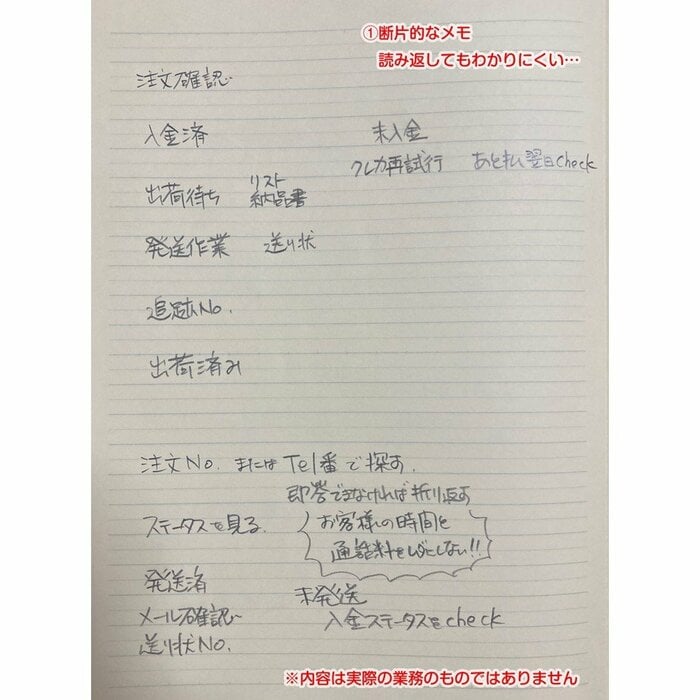 ①断片的なメモ
読み返してもわかりにくい…
注文確認
入金済 未入金
クレカ再試行 あと払 翌日check
出荷待ち リスト
納品書
発送作業 送り状
追跡No.
出荷済み
注文No. またはTel番で探す。
即答できなければ折り返す
ステータスを見る。 お客様の時間と
通話料をムダにしない!!
発送済 未発送
メール確認 入金ステータスをcheck
送り状No.
※内容は実際の業務のものではありません